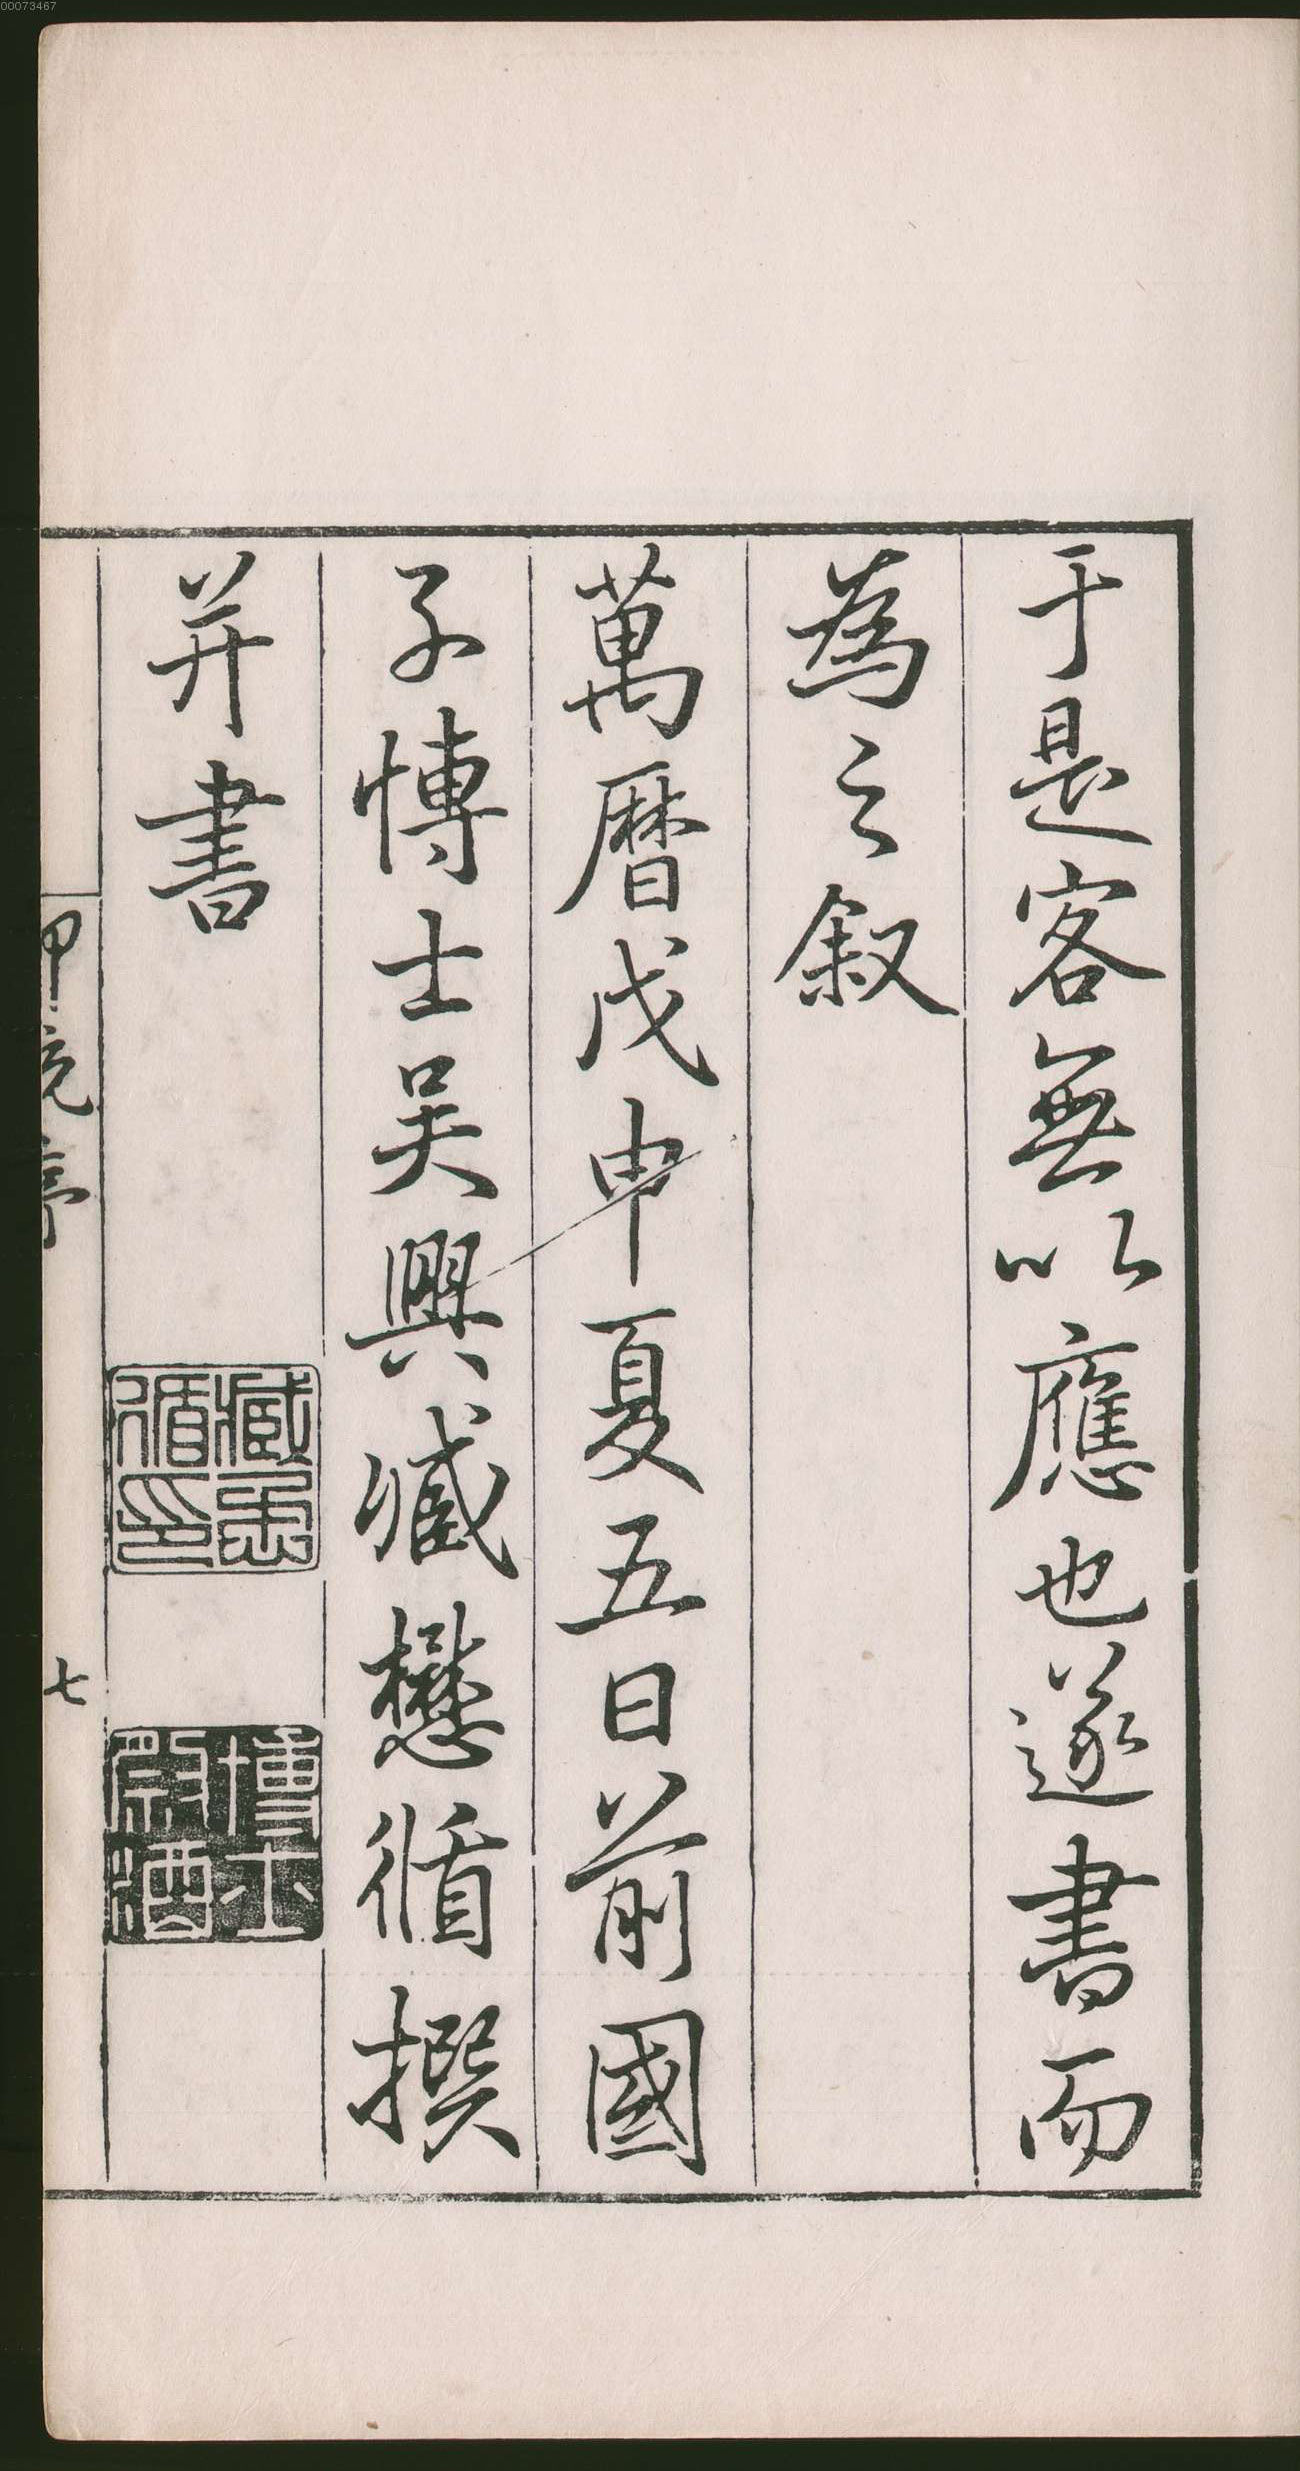 于是客無以應也遂書而
為之敘
萬曆戊申夏五日前國
子博士吳興臧懋循撰
并書
臧懋循印
博士祭酒
七
00073467